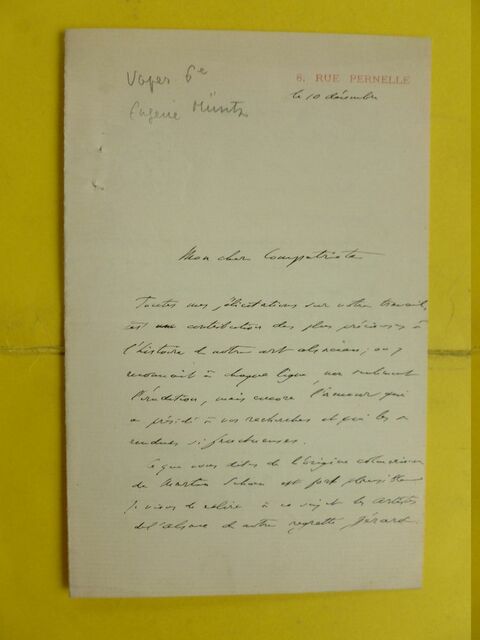 6, RUE PERNELLE
le 10 décembre
Eugène Müntz
Mon cher Compatriote
Toutes mes félicitations sur votre travail,
est une contribution des plus précieuses à
l'histoire de notre art alsacien; on y
reconnait à chaque ligne, non seulement
l'érudition, mais encore l'amour qui
a présidé à vos recherches et qui les a
rendues si fructueuses.
Ce que vous dites de l'origine colmarienne
de Martin Schon est fort plausible
Je viens de relire à ce sujet les Artistes
de l'Alsace de notre regretté Gérard.